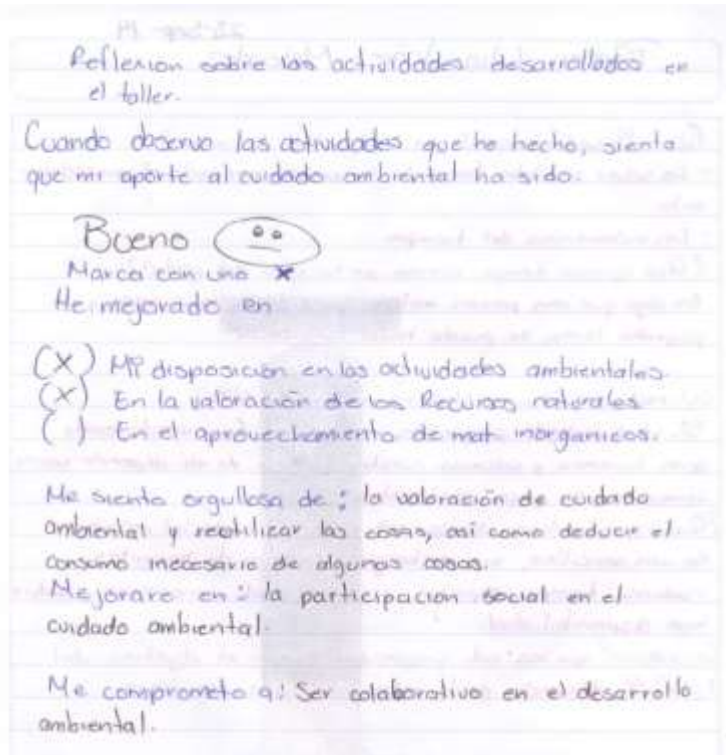 Reflexion sobre las actividades desarrolladas en
el taller.
Cuando observo las actividades que he hecho, siento
que mi aporte al cuidado ambiental ha sido.
Bueno
Marca con una x
He mejorado en
(X) Mi disposición en las actividades ambientales.
(X) En la valoración de los Recursos naturales
( ) En el aprovechamiento de mat inorganicos.
Me siento orgullosa de : la valoración de cuidado
ambiental y reutilizar las cosas, asi como deducir el
consumo inecesario de algunas cosas.
Mejorare en : la participacion social en el
cuidado ambiental.
Me comprometo a: Ser colaborativo en el desarrollo
ambiental.